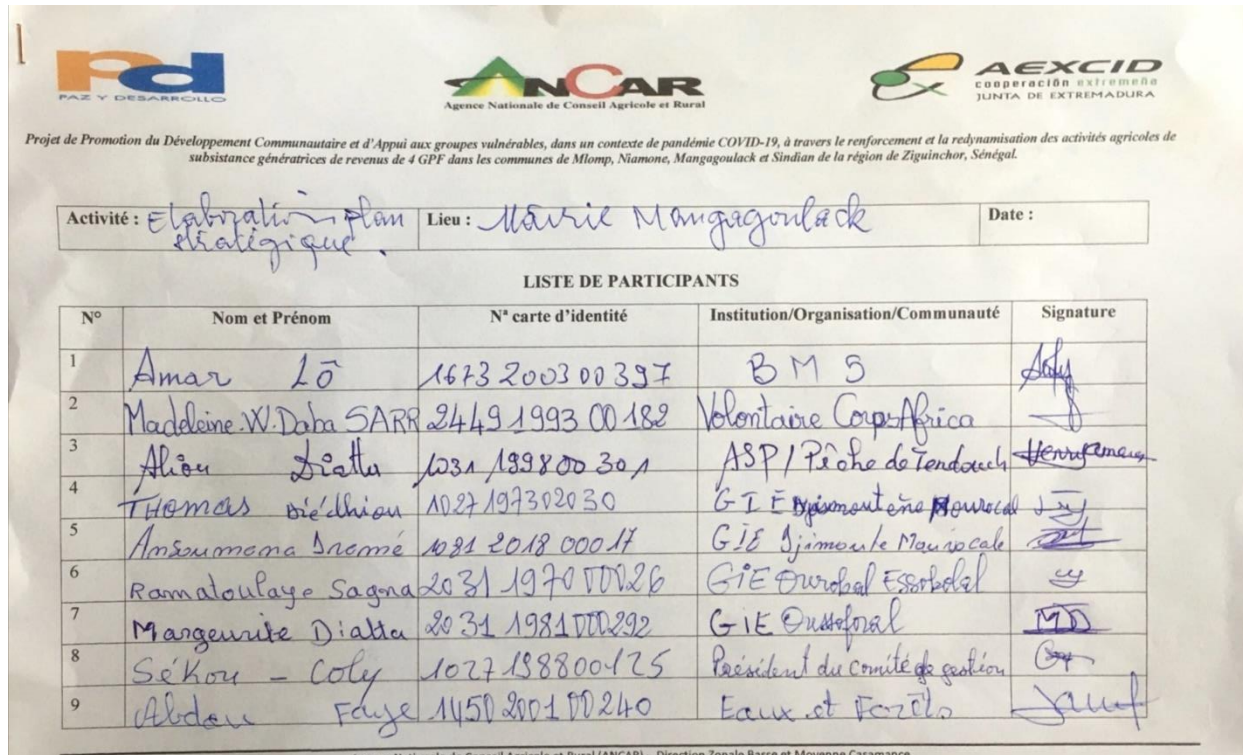 PAZ Y DESARROLLO
ANCAR
Agence Nationale de Conseil Agricole et Rural
AEXCID
cooperación extremeña
JUNTA DE EXTREMADURA
Projet de Promotion du Développement Communautaire et d'Appui aux groupes vulnérables, dans un contexte de pandémie COVID-19, à travers le renforcement et la redynamisation des activités agricoles de
subsistance génératrices de revenus de 4 GPF dans les communes de Mlomp, Niamone, Mangagoulack et Sindian de la région de Ziguinchor, Sénégal.
Activité : Elaboration plan stratégique. Lieu : Mairie Mangagoulack Date :
LISTE DE PARTICIPANTS
N° Nom et Prénom Nª carte d'identité Institution/Organisation/Communauté Signature
1 Amar Lô 1673 2003 00 397 BMS
2 Madeleine.W.Daba SARR 2449 1993 00 182 Volontaire CorpsAfrica
3 Aliou Diatta 1031 1998 00 301 ASP/Pêche de Tendouck
4 THOMAS Diédhiou 1027 197302030 GIE
5 Ansoumana Dramé 1081 2018 00017 GIE Djimoute
6 Ramatoulaye Sagna 2031 1970 00026 GIE
7 Margeurite Diatta 2031 1981 000292 GIE MD
8 Sékou - Coly 1027 198800125 Président du comité de gestion
9 Abdou Faye 1450 2001 00 240 Eaux et Forêts
Nationale de Conseil Agricole et Rural (ANCAR) – Direction Zonale Basse et Moyenne Casamance